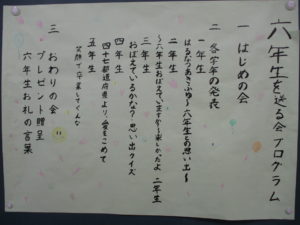 六年生を送る会プログラム
一 はじめの会
二 各学年の発表
一年生
はるなつあきふゆ〜六年生との思い出〜
二年生
〜六年生おぼえていますか〜楽しかったよ 二年生
三年生
おぼえているかな？思い出クイズ
四年生
四十七都道府県より愛をこめて
五年生
笑顔で卒業してくんな
三 おわりの会
プレゼント贈呈
六年生お礼の言葉